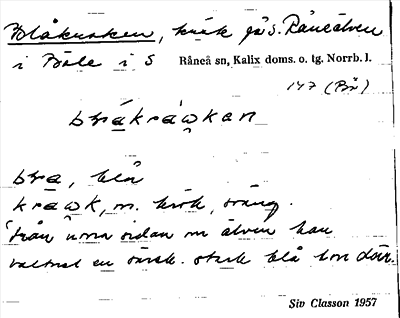 Blåkroken, krök på S. Råneälven
i Böle i S Råneå sn, Kalix doms. o. tg. Norrb. l.
147 (Bö)
bråkråwkan
bra, blå
kråwk, m. krök, sväng.
från norra sidan om älven har
vattnet en särsk. stark blå ton där.
Siv Classon 1957